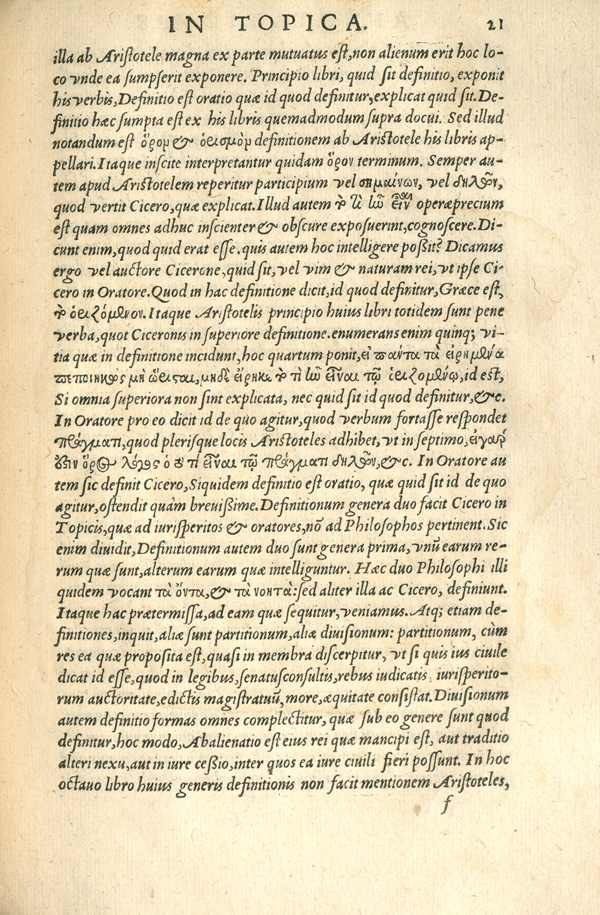 IN TOPICA. 21
illa ab Aristotele magna ex parte mutuatus est, non alienum erit hoc lo-
co vnde ea sumpserit exponere. Principio libri, quid sit definitio, exponit
his verbis, Definitio est oratio quæ id quod definitur, explicat quid sit. De-
finitio hæc sumpta est ex his libris quemadmodum supra docui. Sed illud
notandum est ὅρον & ὁρισμὸν definitionem ab Aristotele his libris ap-
pellari. Itaque inscite interpretantur quidam ὅρον terminum. Semper au-
tem apud Aristotelem reperitur participium vel σημαίνων, vel δηλῶν,
quod vertit Cicero, quæ explicat. Illud autem τὸ τί ἦν εἶναι operæprecium
est quam omnes adhuc inscienter & obscure exposuerint, cognoscere. Di-
cunt enim, quod quid erat esse. quis autem hoc intelligere poßit? Dicamus
ergo vel auctore Cicerone, quid sit, vel vim & naturam rei, vt ipse Ci-
cero in Oratore. Quod in hac definitione dicit, id quod definitur, Græce est,
τὸ ὁριζόμενον. Itaque Aristotelis principio huius libri totidem sunt pene
verba, quot Ciceronis in superiore definitione. enumerans enim quinq; vi-
tia quæ in definitione incidunt, hoc quartum ponit, εἰ πάντα τὰ εἰρημένα
πεποιηκὼς μὴ ὥρισται, μηδὲ εἴρηκε τὸ τί ἦν εἶναι τῷ ὁριζομένῳ, id est,
Si omnia superiora non sint explicata, nec quid sit id quod definitur, &c.
In Oratore pro eo dicit id de quo agitur, quod verbum fortasse respondet
πράγματι, quod plerisque locis Aristoteles adhibet, vt in septimo, εἰ γὰρ
ἐστιν ὅρος λόγος ὁ τί εἶναι τῷ πράγματι δηλῶν, &c. In Oratore au
tem sic definit Cicero, Siquidem definitio est oratio, quæ quid sit id de quo
agitur, ostendit quàm breuißime. Definitionum genera duo facit Cicero in
Topicis, quæ ad iurisperitos & oratores, nō ad Philosophos pertinent. Sic
enim diuidit, Definitionum autem duo sunt genera prima, vnū earum re-
rum quæ sunt, alterum earum quæ intelliguntur. Hæc duo Philosophi illi
quidem vocant τὰ ὄντα, & τὰ νοητά: sed aliter illa ac Cicero, definiunt.
Itaque hac prætermissa, ad eam quæ sequitur, veniamus. Atq; etiam de-
finitiones, inquit, aliæ sunt partitionum, aliæ diuisionum: partitionum, cùm
res ea quæ proposita est, quasi in membra discerpitur, vt si quis ius ciuile
dicat id esse, quod in legibus, senatusconsultis, rebus iudicatis, iurisperito-
rum auctoritate, edictis magistratuū, more, æquitate consistat. Diuisionum
autem definitio formas omnes complectitur, quæ sub eo genere sunt quod
definitur, hoc modo, Abalienatio est eius rei quæ mancipi est, aut traditio
alteri nexu, aut in iure ceßio, inter quos ea iure ciuili fieri possunt. In hoc
octauo libro huius generis definitionis non facit mentionem Aristoteles,
f